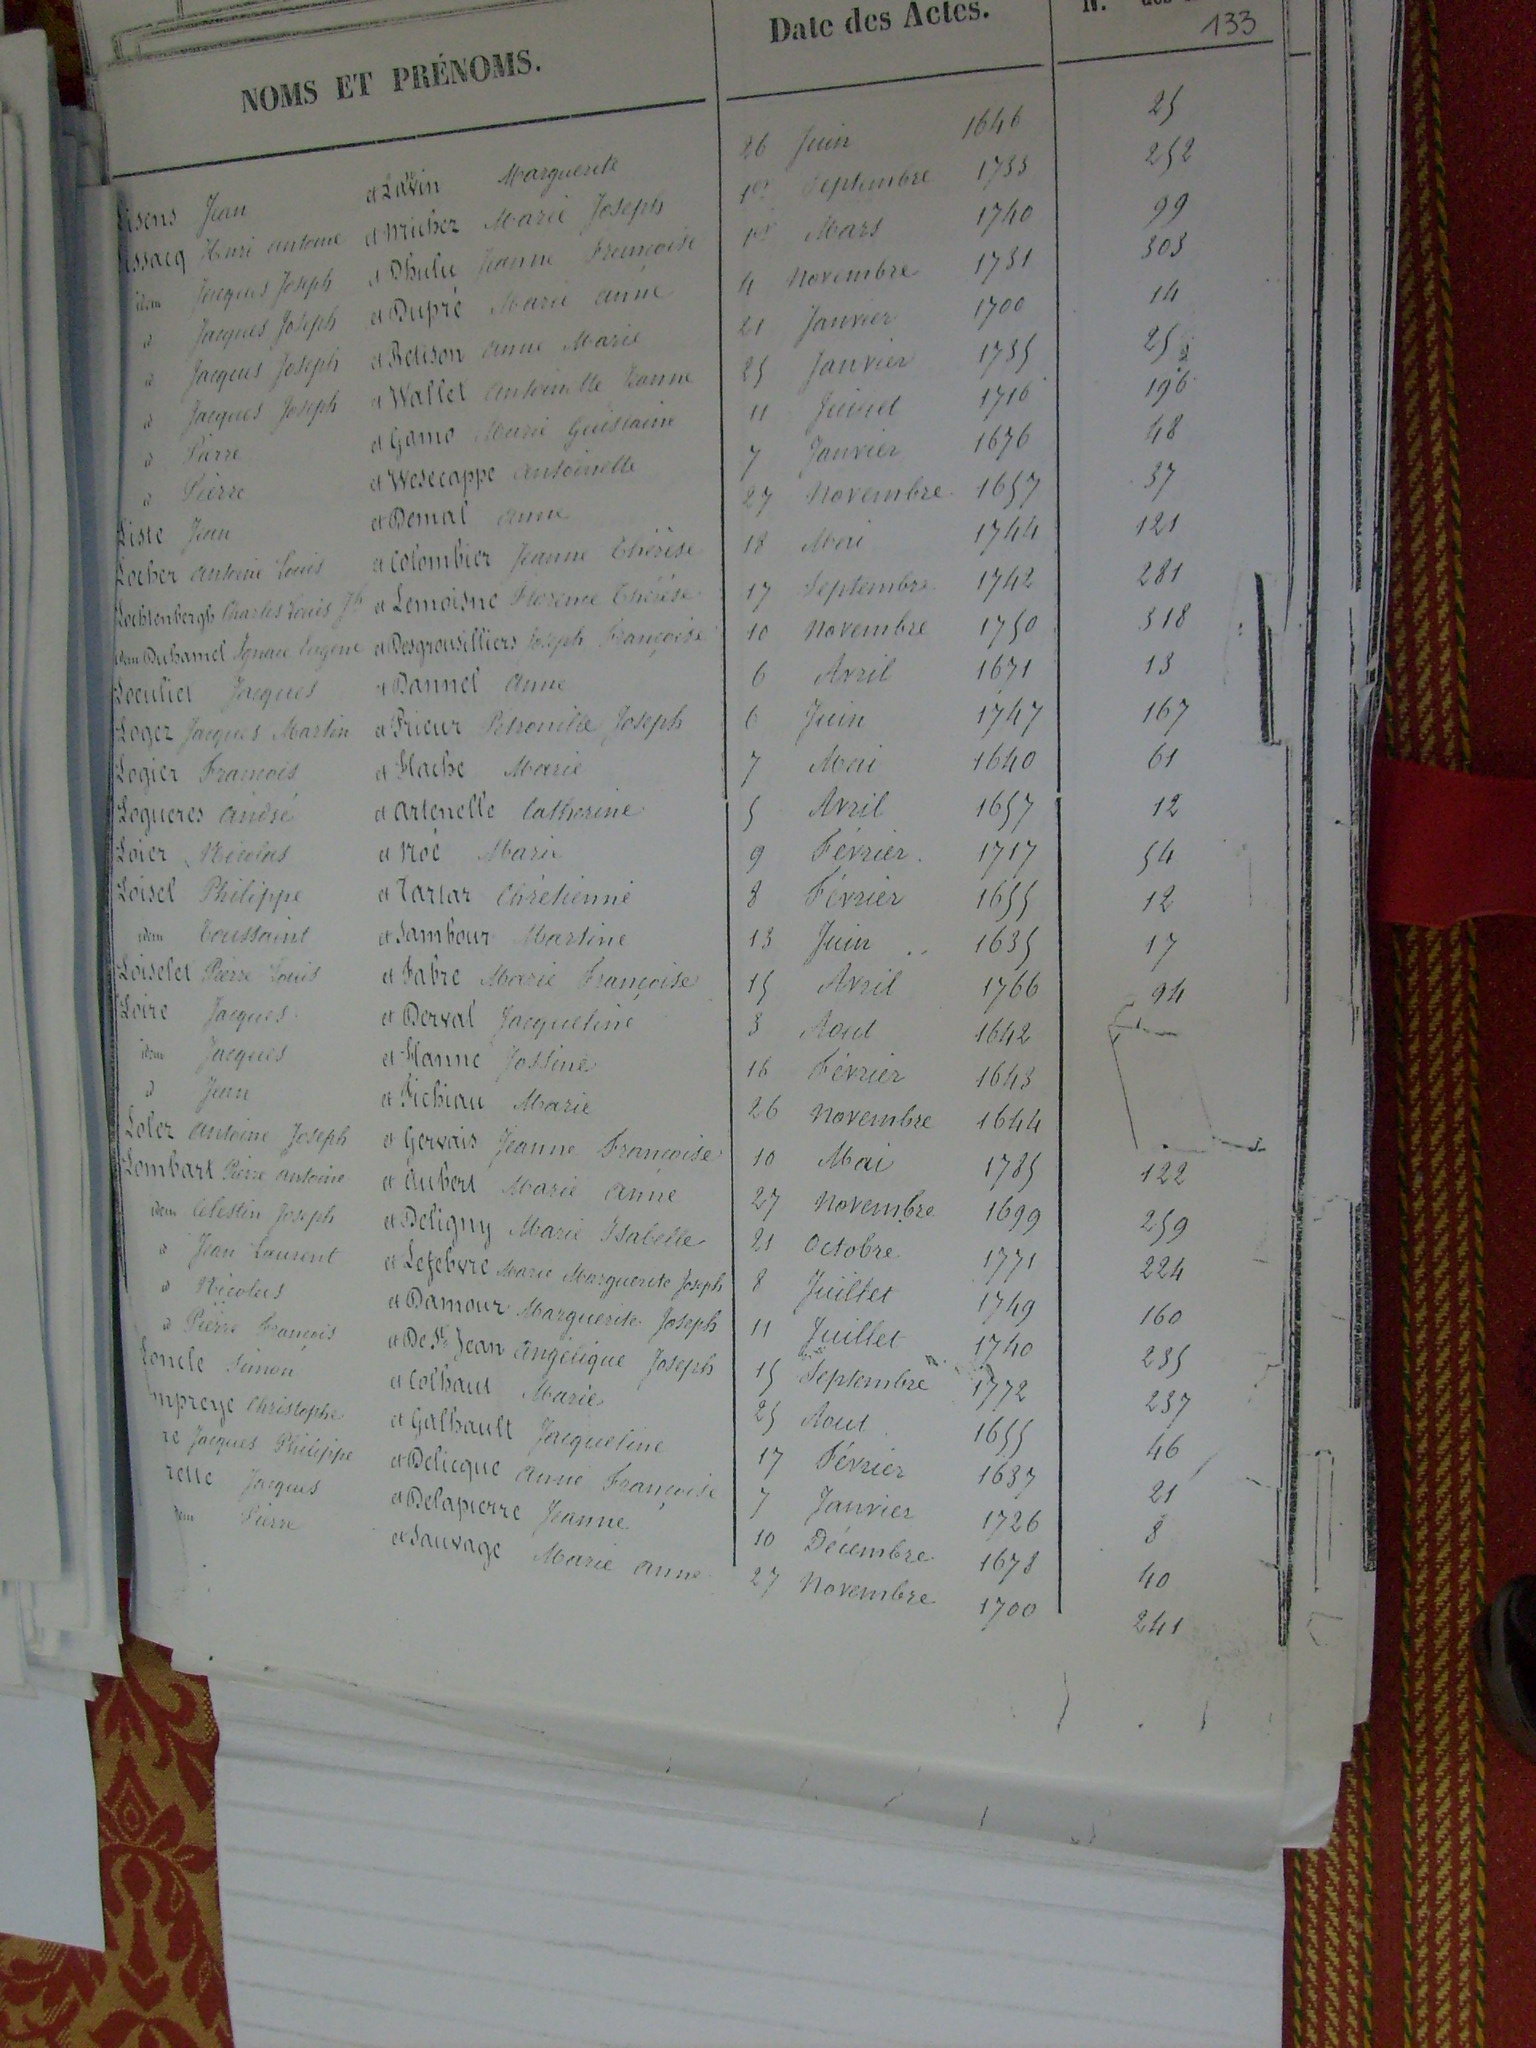 NOMS ET PRÉNOMS. Date des Actes. N.
133
Lisens Jean et Lavin Marguerite 26 Juin 1646 25
Lissacq Henri Antoine et Michez Marie Joseph 1er Septembre 1733 252
idem Jacques Joseph et Dhulu Jeanne Françoise 1er Mars 1740 99
d Jacques Joseph et Dupré Marie Anne 4 Novembre 1731 303
d Jacques Joseph et Retison Anne Marie 21 Janvier 1700 14
d Jacques Joseph et Wallet Antoinette Jeanne 25 Janvier 1735 25
d Pierre et Gamo Marie Guislaine 11 Juillet 1716 196
d Pierre et Wesecappe Antoinette 7 Janvier 1676 48
Liste Jean et Demal Anne 27 Novembre 1657 37
Locher Antoine Louis et Colombier Jeanne Thérèse 18 Mai 1744 121
Lochtenbergh Charles Louis Jh et Lemoisne Florence Thérèse 17 Septembre 1742 281
idem Duhamel Ignace Eugène et Desgrousilliers Joseph Françoise 10 Novembre 1750 318
Loeuliet Jacques et Dannel Anne 6 Avril 1671 13
Logez Jacques Martin et Prieur Pétronille Joseph 6 Juin 1747 167
Logier François et Hache Marie 7 Mai 1640 61
Logueres André et Artenelle Catherine 5 Avril 1657 12
Loier Nicolas et Noé Marie 9 Février 1717 54
Loisel Philippe et Tartar Chrétienne 8 Février 1655 12
idem Toussaint et Sambour Martine 13 Juin 1635 17
Loiselet Pierre Louis et Fabre Marie Françoise 15 Avril 1766 94
Loire Jacques et Derval Jacqueline 3 Aout 1642
idem Jacques et Hanne Jossine 16 Février 1643
d Jean et Fichiau Marie 26 Novembre 1644
Lolez Antoine Joseph et Gervais Jeanne Françoise 10 Mai 1785 122
Lombart Pierre Antoine et Aubert Marie Anne 27 Novembre 1699 259
idem Célestin Joseph et Deligny Marie Isabelle 21 Octobre 1771 224
d Jean Laurent et Lefebvre Marie Marguerite Joseph 8 Juillet 1749 160
d Nicolas et Damour Marguerite Joseph 11 Juillet 1740 235
d Pierre François et De St Jean Angélique Joseph 15 Septembre 1772 237
Loncle Simon et Colhaut Marie 25 Aout 1655 46
mpreye Christophe et Galhault Jacqueline 17 Février 1637 21
re Jacques Philippe et Delicque Anne Françoise 7 Janvier 1726 8
rette Jacques et Delapierre Jeanne 10 Décembre 1678 40
dem Pierre et Sauvage Marie Anne 27 Novembre 1700 241